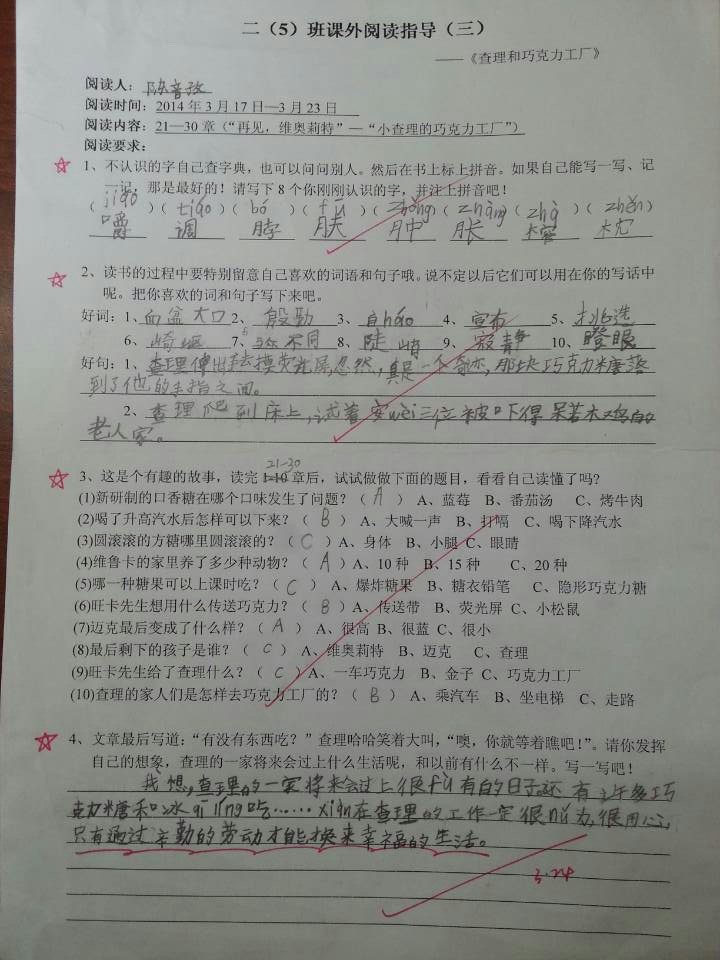 二（5）班课外阅读指导（三）
——《查理和巧克力工厂》
阅读人：陈音孜
阅读时间：2014年3月17日—3月23日
阅读内容：21—30章（“再见，维奥莉特”—“小查理的巧克力工厂”）
阅读要求：
1、不认识的字自己查字典，也可以问问别人。然后在书上标上拼音。如果自己能写一写、记
一记，那是最好的！请写下8个你刚刚认识的字，并注上拼音吧！
（jiáo）（tiáo）（bó）（fū）（zhǒng）（zhàng）（zhà）（zhěn）
嚼 调 脖 肤 肿 胀 榨 枕
2、读书的过程中要特别留意自己喜欢的词语和句子哦。说不定以后它们可以用在你的写话中
呢。把你喜欢的词和句子写下来吧。
好词：1、血盆大口 2、殷勤 3、自háo 4、宣布 5、挑选
6、崎岖 7、与众不同 8、陡峭 9、寂静 10、瞪眼
好句：1、查理伸出手去摸荧光屏,忽然,真是一个奇迹,那块巧克力糖落
到了他的手指之间。
2、查理爬到床上,试着安wèi三位被吓得呆若木鸡的
老人家。
21-30
3、这是个有趣的故事，读完1-10章后，试试做做下面的题目，看看自己读懂了吗？
(1)新研制的口香糖在哪个口味发生了问题？（A） A、蓝莓 B、番茄汤 C、烤牛肉
(2)喝了升高汽水后怎样可以下来？（B） A、大喊一声 B、打嗝 C、喝下降汽水
(3)圆滚滚的方糖哪里圆滚滚的？（C）A、身体 B、小腿 C、眼睛
(4)维鲁卡的家里养了多少种动物？（A）A、10种 B、15种 C、20种
(5)哪一种糖果可以上课时吃？（C） A、爆炸糖果 B、糖衣铅笔 C、隐形巧克力糖
(6)旺卡先生想用什么传送巧克力？（B）A、传送带 B、荧光屏 C、小松鼠
(7)迈克最后变成了什么样？（A） A、很高 B、很蓝 C、很小
(8)最后剩下的孩子是谁？（C） A、维奥莉特 B、迈克 C、查理
(9)旺卡先生给了查理什么？（C）A、一车巧克力 B、金子 C、巧克力工厂
(10)查理的家人们是怎样去巧克力工厂的？（B） A、乘汽车 B、坐电梯 C、走路
4、文章最后写道：“有没有东西吃？”查理哈哈笑着大叫，“噢，你就等着瞧吧！”。请你发挥
自己的想象，查理的一家将来会过上什么生活呢，和以前有什么不一样。写一写吧！
我想,查理的一家将来会过上很fù有的日子,还有许多巧
克力糖和冰qí líng吃……xiàn在查理的工作一定很nǔ为,很用心,
只有通过辛勤的劳动才能换来幸福的生活。
3.24